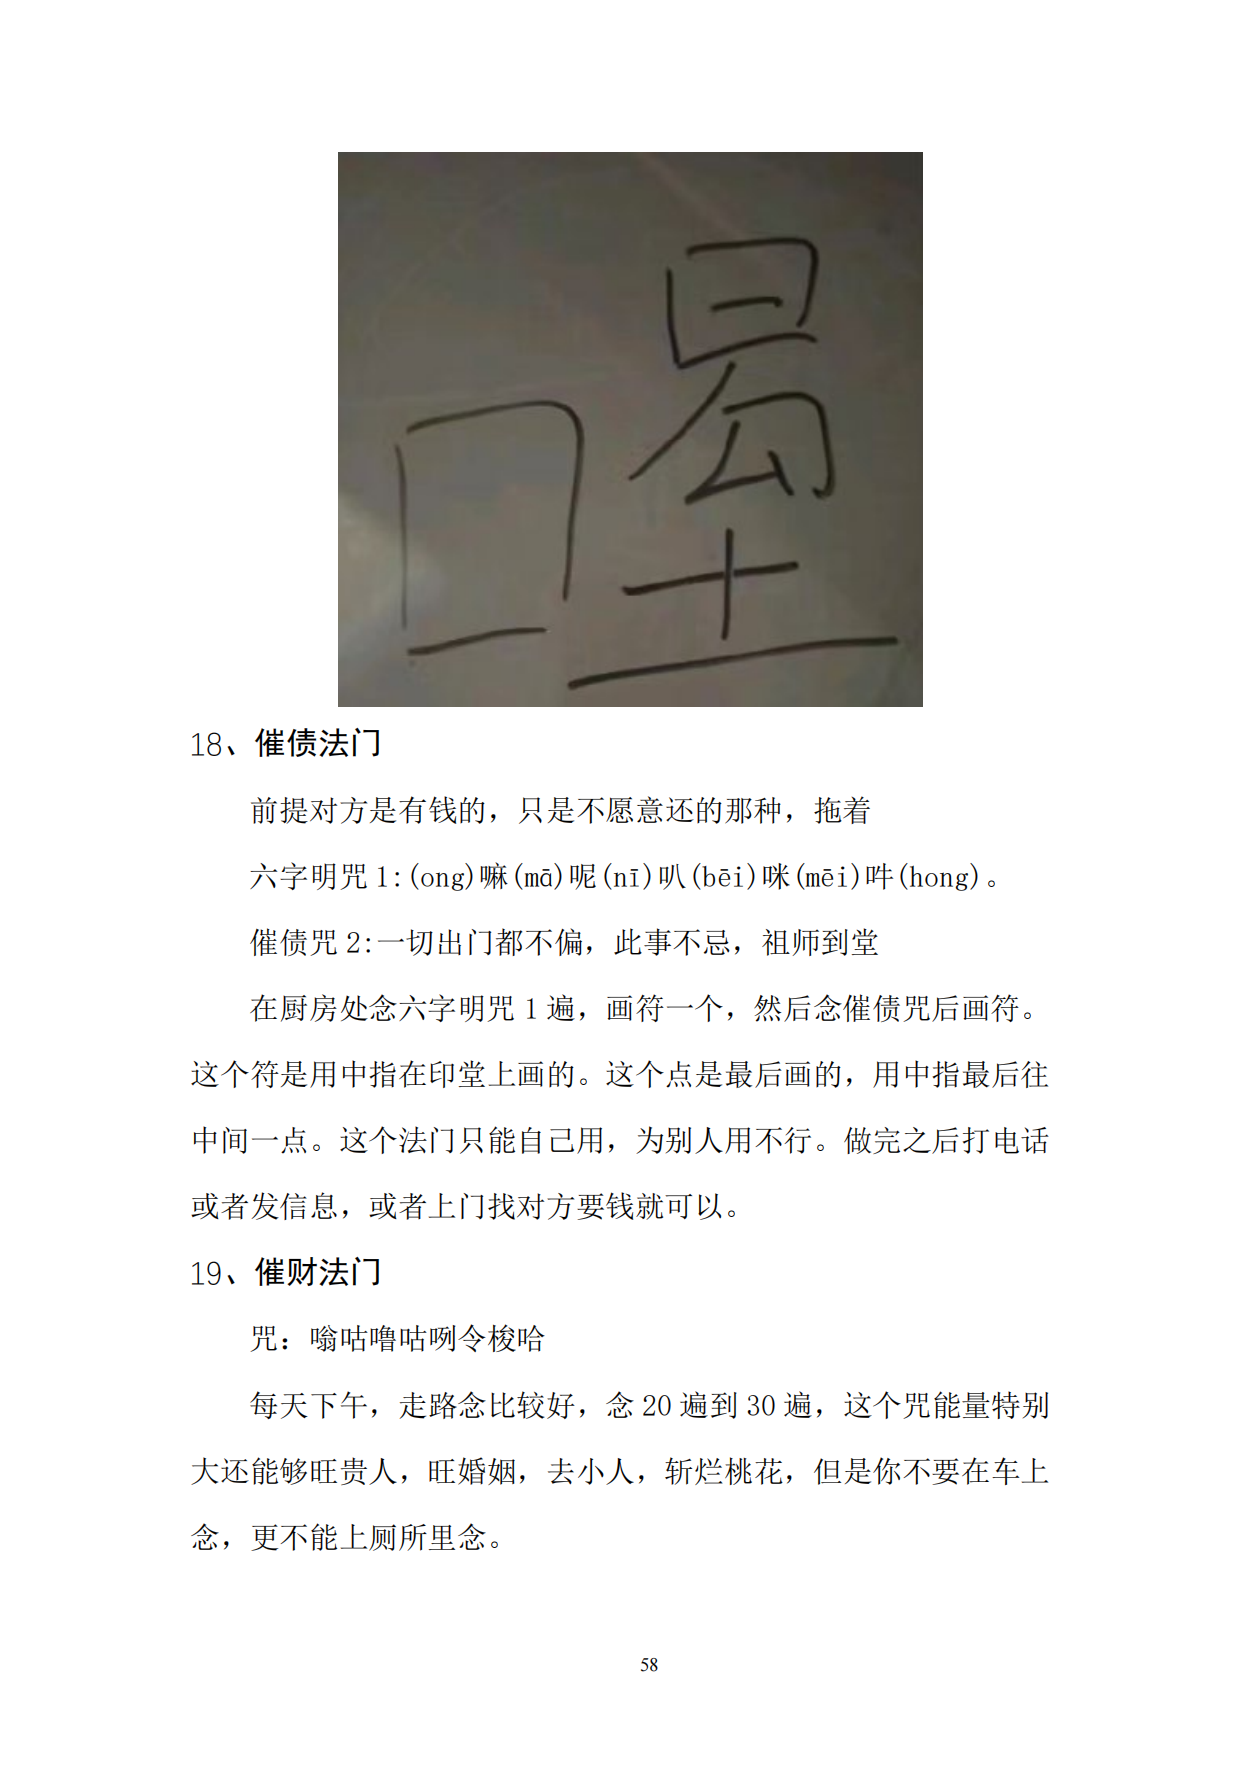 18、催债法门
前提对方是有钱的，只是不愿意还的那种，拖着
六字明咒 1:(ong)嘛(mā)呢(nī)叭(bēi)咪(mēi)吽(hong)。
催债咒 2:一切出门都不偏，此事不忌，祖师到堂
在厨房处念六字明咒 1 遍，画符一个，然后念催债咒后画符。
这个符是用中指在印堂上画的。这个点是最后画的，用中指最后往
中间一点。这个法门只能自己用，为别人用不行。做完之后打电话
或者发信息，或者上门找对方要钱就可以。
19、催财法门
咒：嗡咕噜咕咧令梭哈
每天下午，走路念比较好，念 20 遍到 30 遍，这个咒能量特别
大还能够旺贵人，旺婚姻，去小人，斩烂桃花，但是你不要在车上
念，更不能上厕所里念。
58